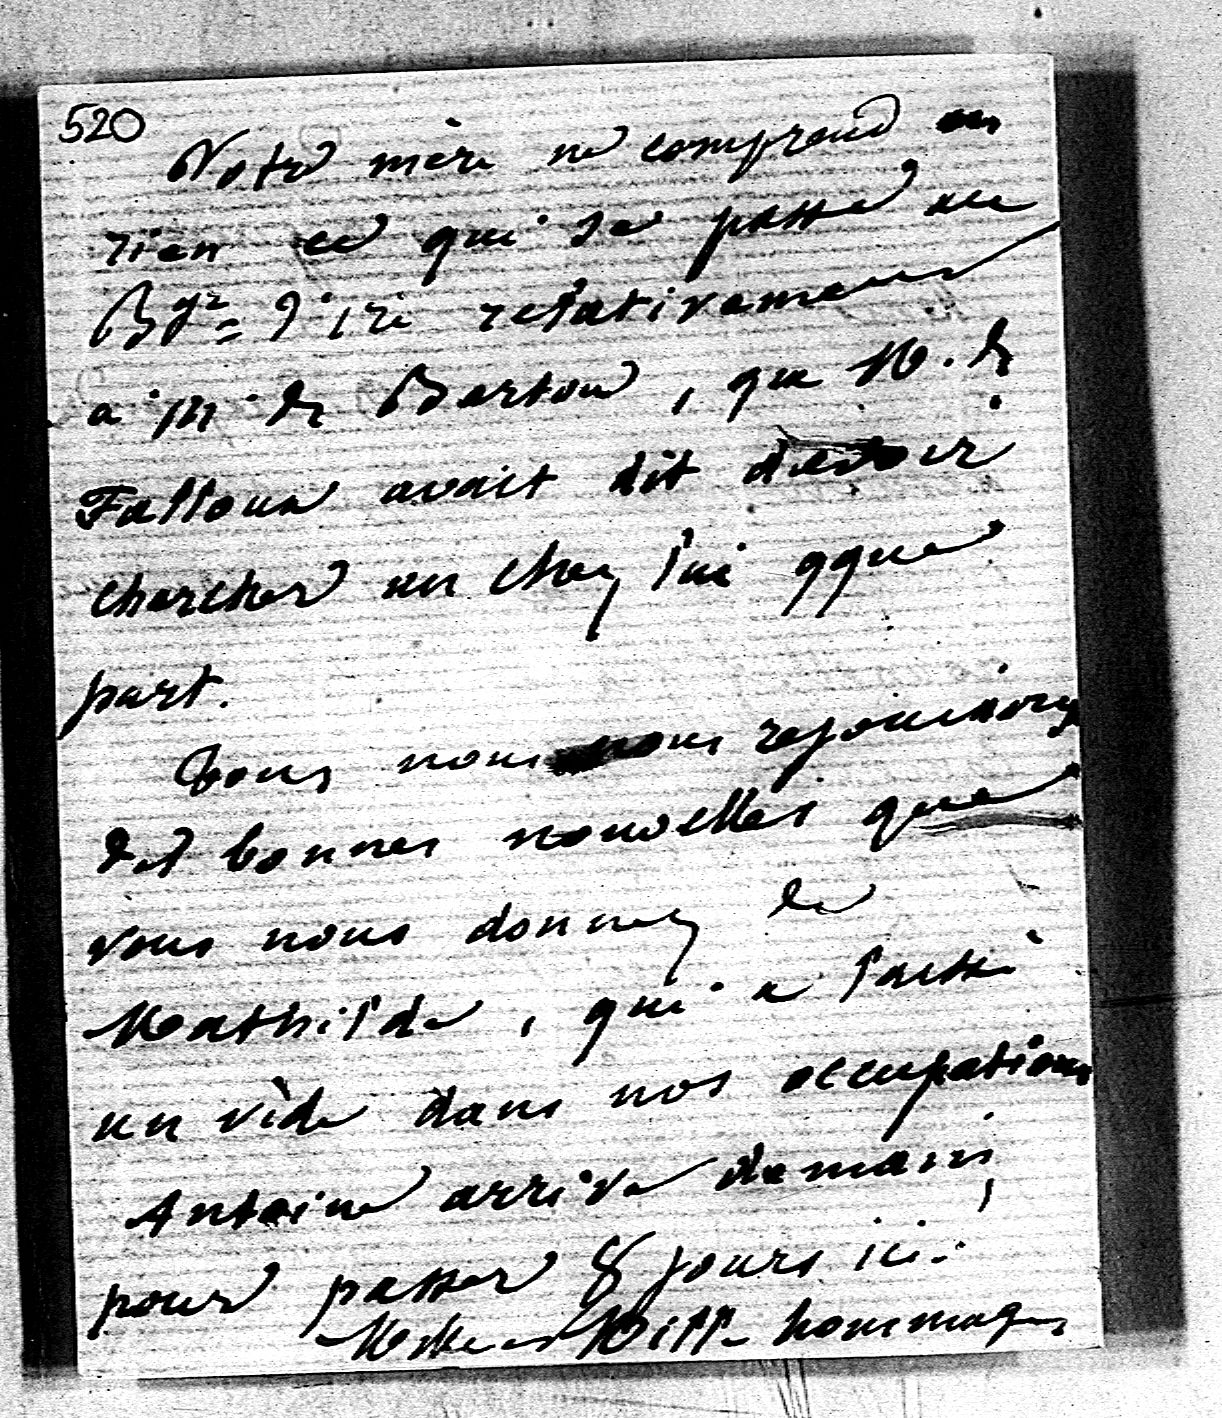 520
Notre mère ne comprend en
rien ce qui se passe au
relativement
a M. de Bertou, que M. de
Falloux avait dit devoir
chercher un chez lui qque
part.
Tous nous nous rejouissons
des bonnes nouvelles que
vous nous donnez de
Mathilde, qui a laissé
un vide dans nos occupations
Antoine arrive demain,
pour passer 8 jours ici.
Mille hommages